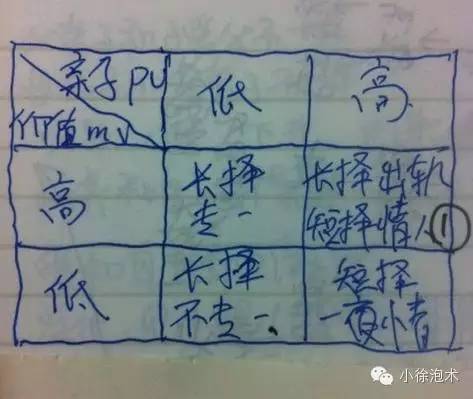 亲子PU
价值mv
低
高
高
长择
专一
长择出轨
短择情人①
低
长择
不专一、
短择
一夜情
小徐泡术